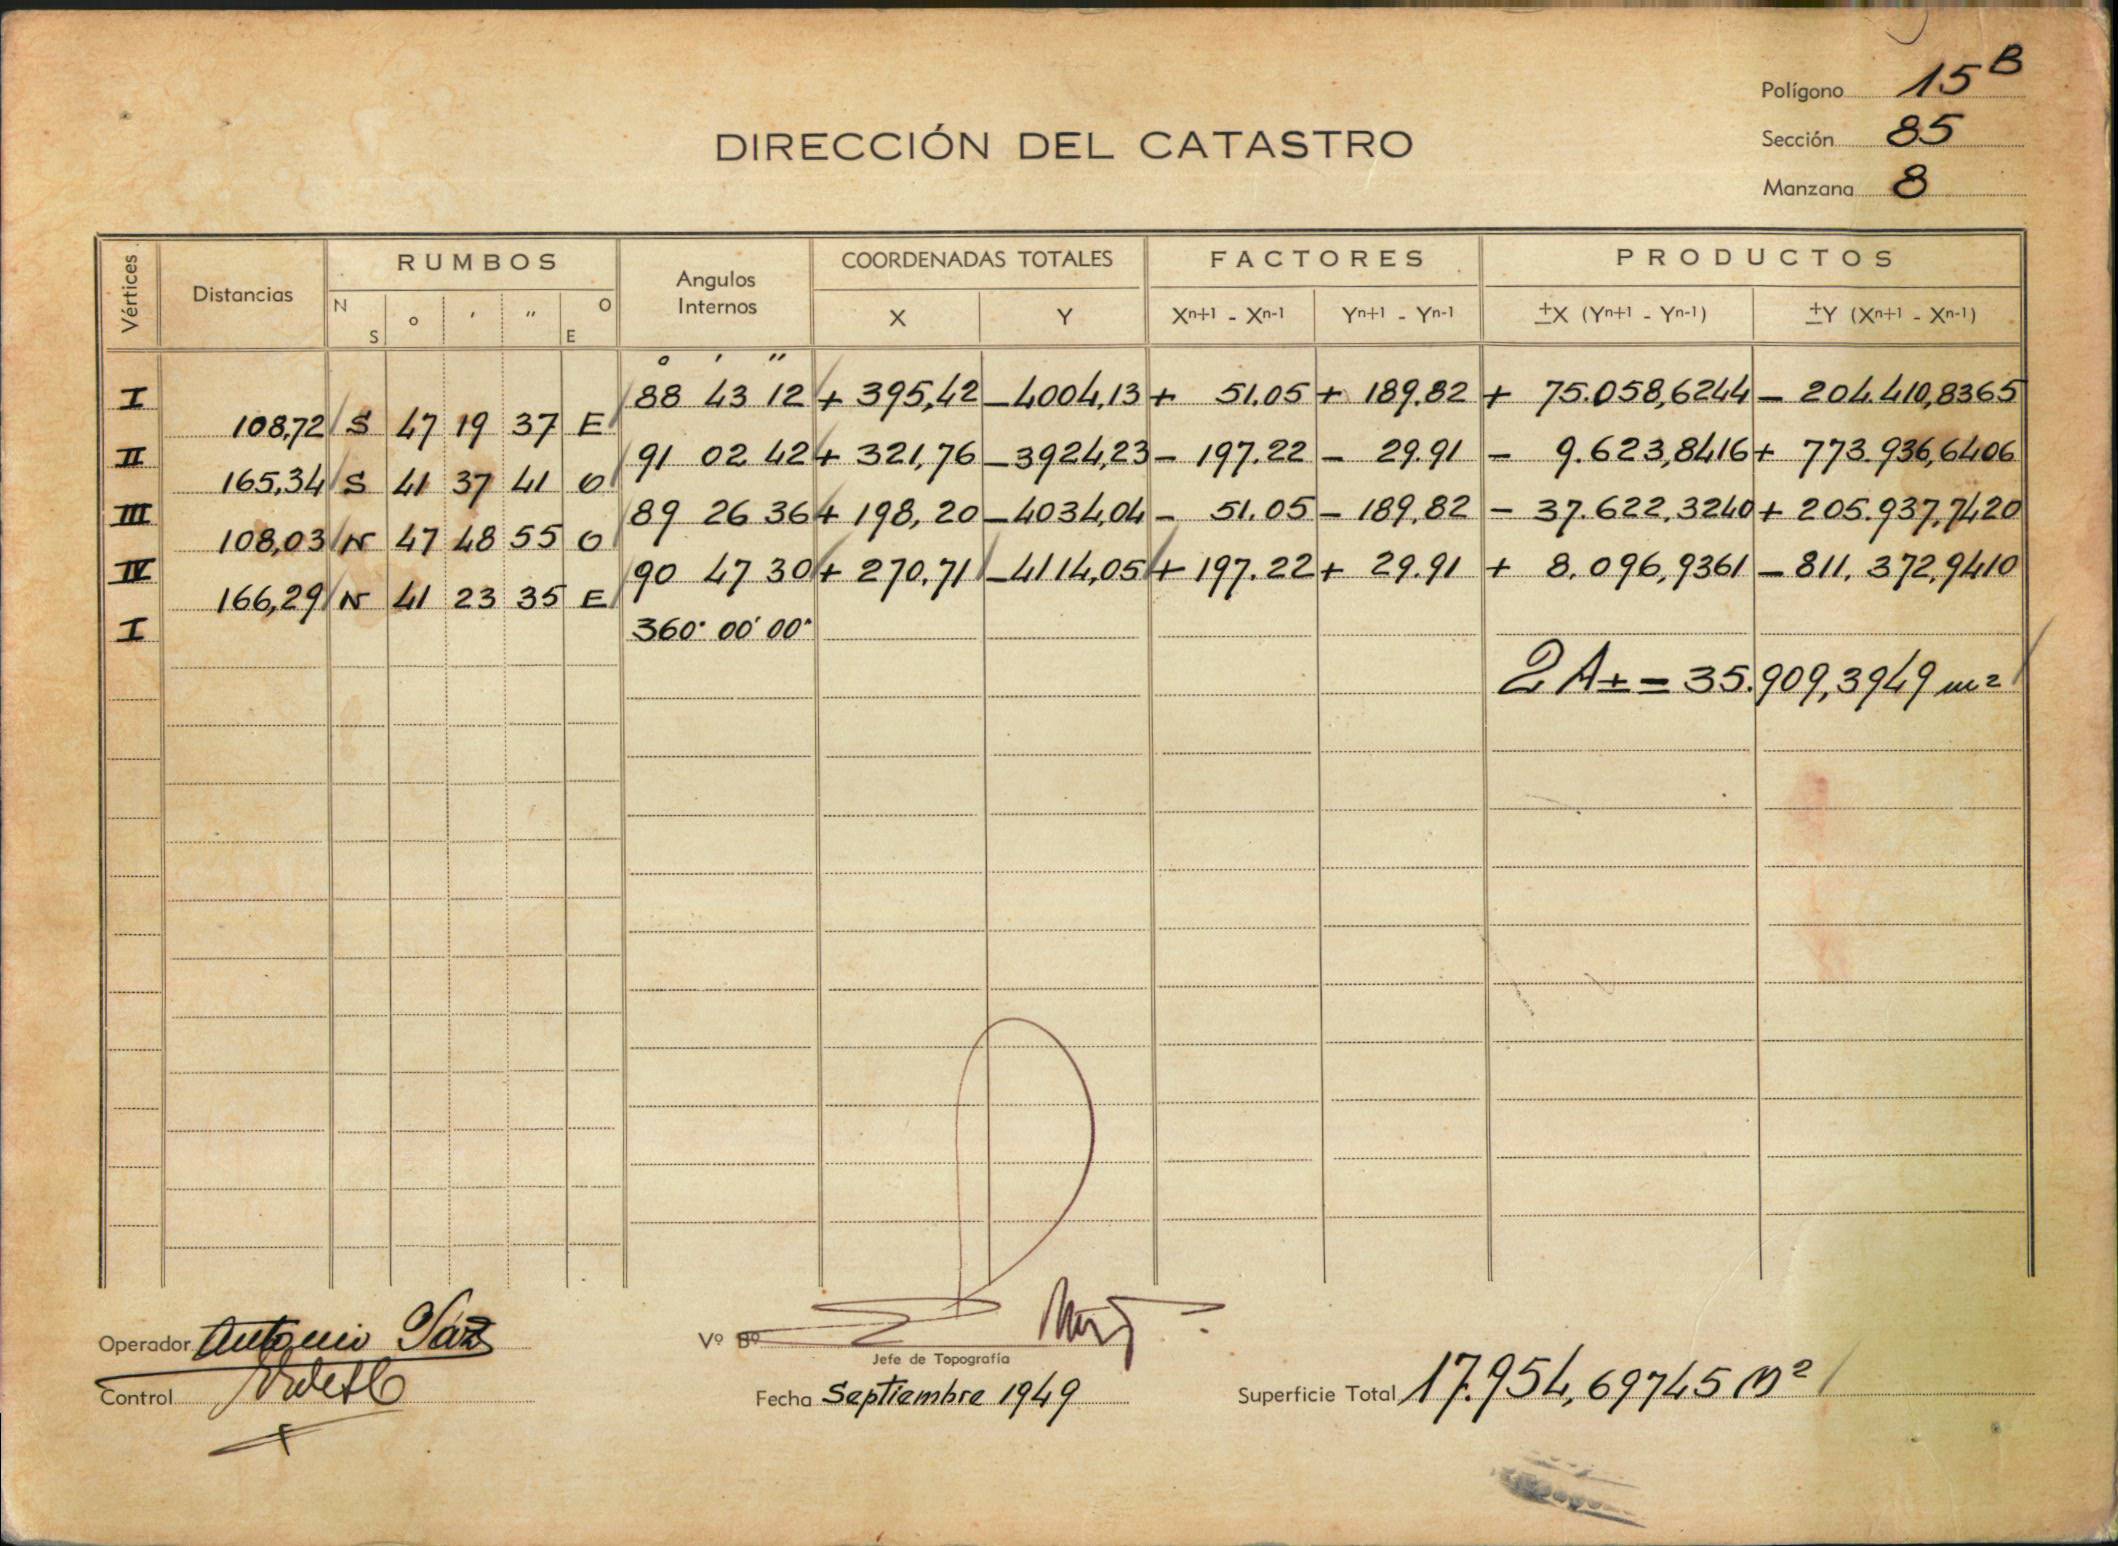 Polígono 15 B
DIRECCIÓN DEL CATASTRO
Sección 85
Manzana 8
Vértices Distancias RUMBOS Angulos Internos COORDENADAS TOTALES FACTORES PRODUCTOS
N S o ' " O E X Y Xn+1 - Xn-1 Yn+1 - Yn-1 ±X (Yn+1 - Yn-1) ±Y (Xn+1 - Xn-1)
o ' "
I 88 43 12 + 395,42 - 4004,13 + 51.05 + 189.82 + 75.058,6244 - 204.410,8365
108,72 S 47 19 37 E
II 91 02 42 + 321,76 - 3924,23 - 197.22 - 29.91 - 9.623,8416 + 773.936,6406
165,34 S 41 37 41 O
III 89 26 36 + 198,20 - 4034,04 - 51.05 - 189,82 - 37.622,3240 + 205.937,7420
108,03 N 47 48 55 O
IV 90 47 30 + 270,71 - 4114,05 + 197.22 + 29.91 + 8.096,9361 - 811.372,9410
166,29 N 41 23 35 E
I 360° 00' 00"
2 A ± = 35.909,3949 m2
Operador Antonio Sáz
Vº Bº
Jefe de Topografía
Control
Fecha Septiembre 1949
Superficie Total 17.954,69745 M2